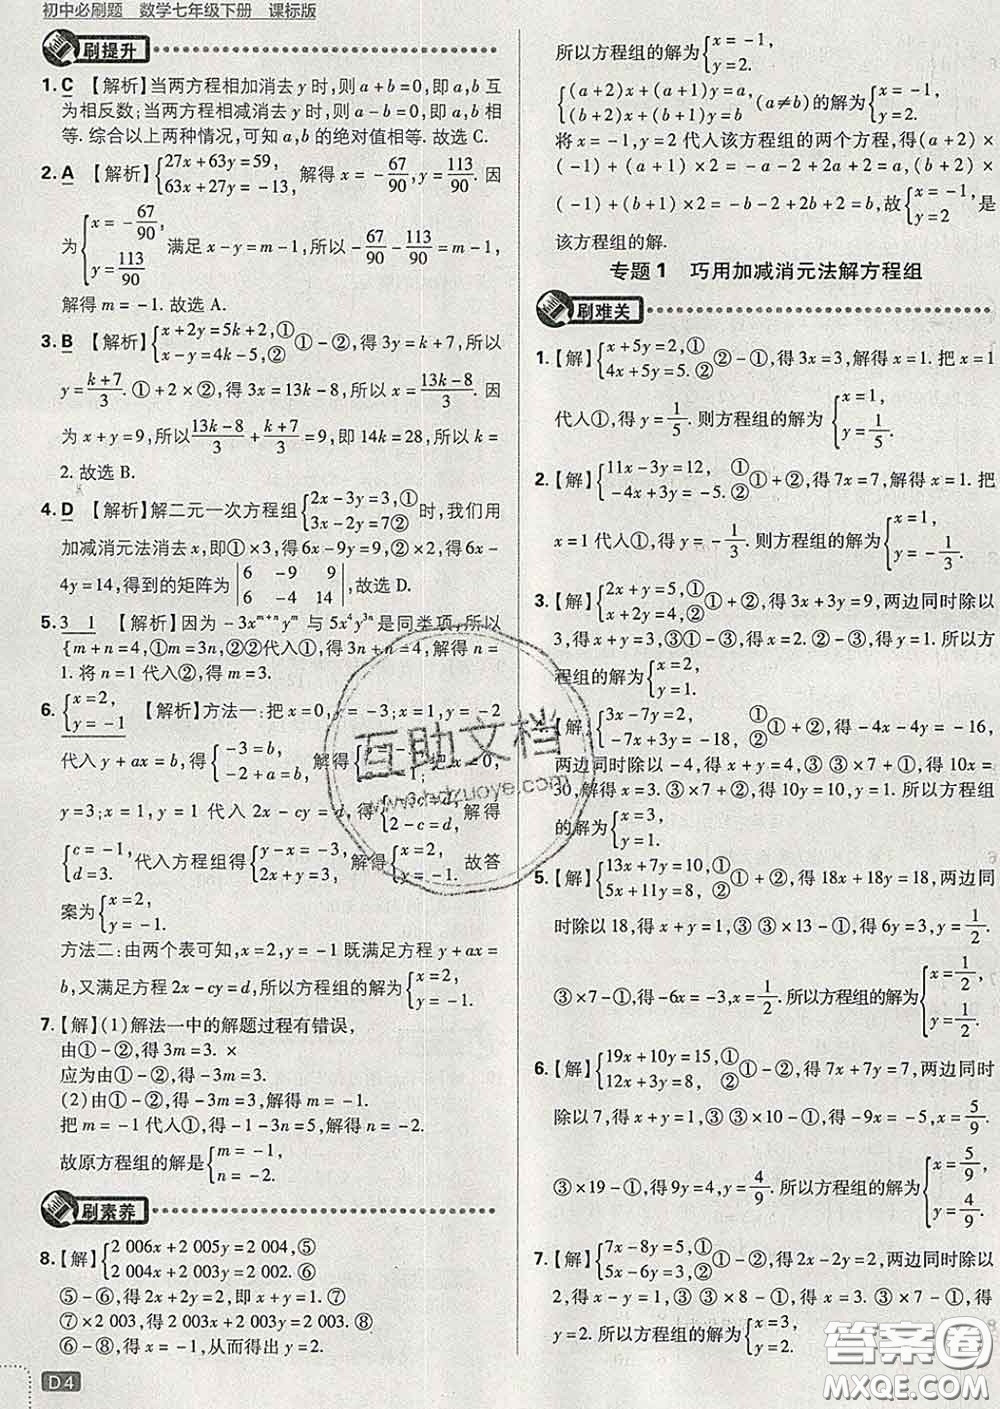 初中必刷题 数学七年级下册 课标版
刷提升
1. C 【解析】当两方程相加消去 y 时,则 a+b=0,即 a,b 互
为相反数;当两方程相减消去 y 时,则 a-b=0,即 a,b 相
等. 综合以上两种情况,可知 a,b 的绝对值相等. 故选 C.
2. A 【解析】{27x+63y=59, 63x+27y=-13, 解得 x=-67/90, y=113/90. 因
为{x=-67/90, y=113/90 满足 x-y=m-1,所以-67/90-113/90=m-1,
解得 m=-1. 故选 A.
3. B 【解析】{x+2y=5k+2,① x-y=4k-5,②①-②,得 3y=k+7,所以
y=(k+7)/3. ①+2×②,得 3x=13k-8,所以 x=(13k-8)/3. 因
为 x+y=9,所以(13k-8)/3+(k+7)/3=9,即 14k=28,所以 k=
2. 故选 B.
4. D 【解析】解二元一次方程组{2x-3y=3,① 3x-2y=7②时,我们用
加减消元法消去 x,即①×3,得 6x-9y=9,②×2,得 6x-
4y=14,得到的矩阵为|6 -9 9 6 -4 14|,故选 D.
5. 3 1 【解析】因为 -3x^(m+n)y^m 与 5x^4y^(3n) 是同类项,所以
{m+n=4,①m=3n,②②代入①,得 3n+n=4,解得 n=
1. 将 n=1 代入②,得 m=3.
6. {x=2, y=-1 【解析】方法一:把 x=0,y=-3;x=1,y=-2
代入 y+ax=b,得{-3=b, -2+a=b, 解得 把 x=0,
y=3;x=1,y=2 代入 2x-cy=d,得 2-c=d, 解得
{c=-1, d=3. 代入方程组得{y-x=-3, 2x+y=3, 解得{x=2, y=-1. 故答
案为{x=2, y=-1.
方法二:由两个表可知,x=2,y=-1 既满足方程 y+ax=
b,又满足方程 2x-cy=d,所以方程组的解为{x=2, y=-1.
7. 【解】(1)解法一中的解题过程有错误,
由①-②,得 3m=3. ×
应为由①-②,得 -3m=3.
(2)由①-②,得 -3m=3,解得 m=-1.
把 m=-1 代入①,得 -1-3n=5,解得 n=-2.
故原方程组的解是{m=-1, n=-2.
刷素养
8. 【解】{2 006x+2 005y=2 004,⑤ 2 004x+2 003y=2 002. ⑥
⑤-⑥,得 2x+2y=2,即 x+y=1. ⑦
⑦×2 003,得 2 003x+2 003y=2 003. ⑧
⑥-⑧,得 x=-1,从而得出 y=2.
D4
所以方程组的解为{x=-1, y=2.
{(a+2)x+(a+1)y=a, (b+2)x+(b+1)y=b,(a≠b)的解为{x=-1, y=2.
将 x=-1,y=2 代入该方程组的两个方程,得(a+2)×
(-1)+(a+1)×2=-a-2+2a+2=a,(b+2)×
(-1)+(b+1)×2=-b-2+2b+2=b,故{x=-1, y=2 是
该方程组的解.
专题 1 巧用加减消元法解方程组
刷难关
1. 【解】{x+5y=2,① 4x+5y=5. ②②-①,得 3x=3,解得 x=1. 把 x=1
代入①,得 y=1/5. 则方程组的解为{x=1, y=1/5.
2. 【解】{11x-3y=12, ① -4x+3y=-5. ②①+②,得 7x=7,解得 x=1. 把
x=1 代入①,得 y=-1/3. 则方程组的解为{x=1, y=-1/3.
3. 【解】{2x+y=5,① x+2y=4,②①+②,得 3x+3y=9,两边同时除以
3,得 x+y=3,③①-③,得 x=2. ②-③,得 y=1. 所以方
程组的解为{x=2, y=1.
【解】{3x-7y=2, ① -7x+3y=-18, ②①+②,得 -4x-4y=-16,
两边同时除以 -4,得 x+y=4,③③×7+①,得 10x=
30,解得 x=3. ③×7+②,得 10y=10,y=1. 所以方程组
的解为{x=3, y=1.
5. 【解】{13x+7y=10,① 5x+11y=8, ②①+②,得 18x+18y=18,两边同
时除以 18,得 x+y=1,③ ③×13-①,得 6y=3,y=1/2.
③×7-①,得 -6x=-3,x=1/2. 所以方程组的解为{x=1/2, y=1/2.
6. 【解】{19x+10y=15,① 12x+3y=8, ②①-②,得 7x+7y=7,两边同时
除以 7,得 x+y=1,③ ③×10-①,得 -9x=-5,x=5/9.
③×19-①,得 9y=4,y=4/9. 所以方程组的解为{x=5/9, y=4/9.
7. 【解】{7x-8y=5,① 5x-6y=3,②①-②,得 2x-2y=2,两边同时除以
2,得 x-y=1,③ ③×8-①,得 x=3. ③×7-①,得
y=2. 所以方程组的解为{x=3, y=2.
互助文档
www.hdzuoye.com
答案圈
MXQE.COM